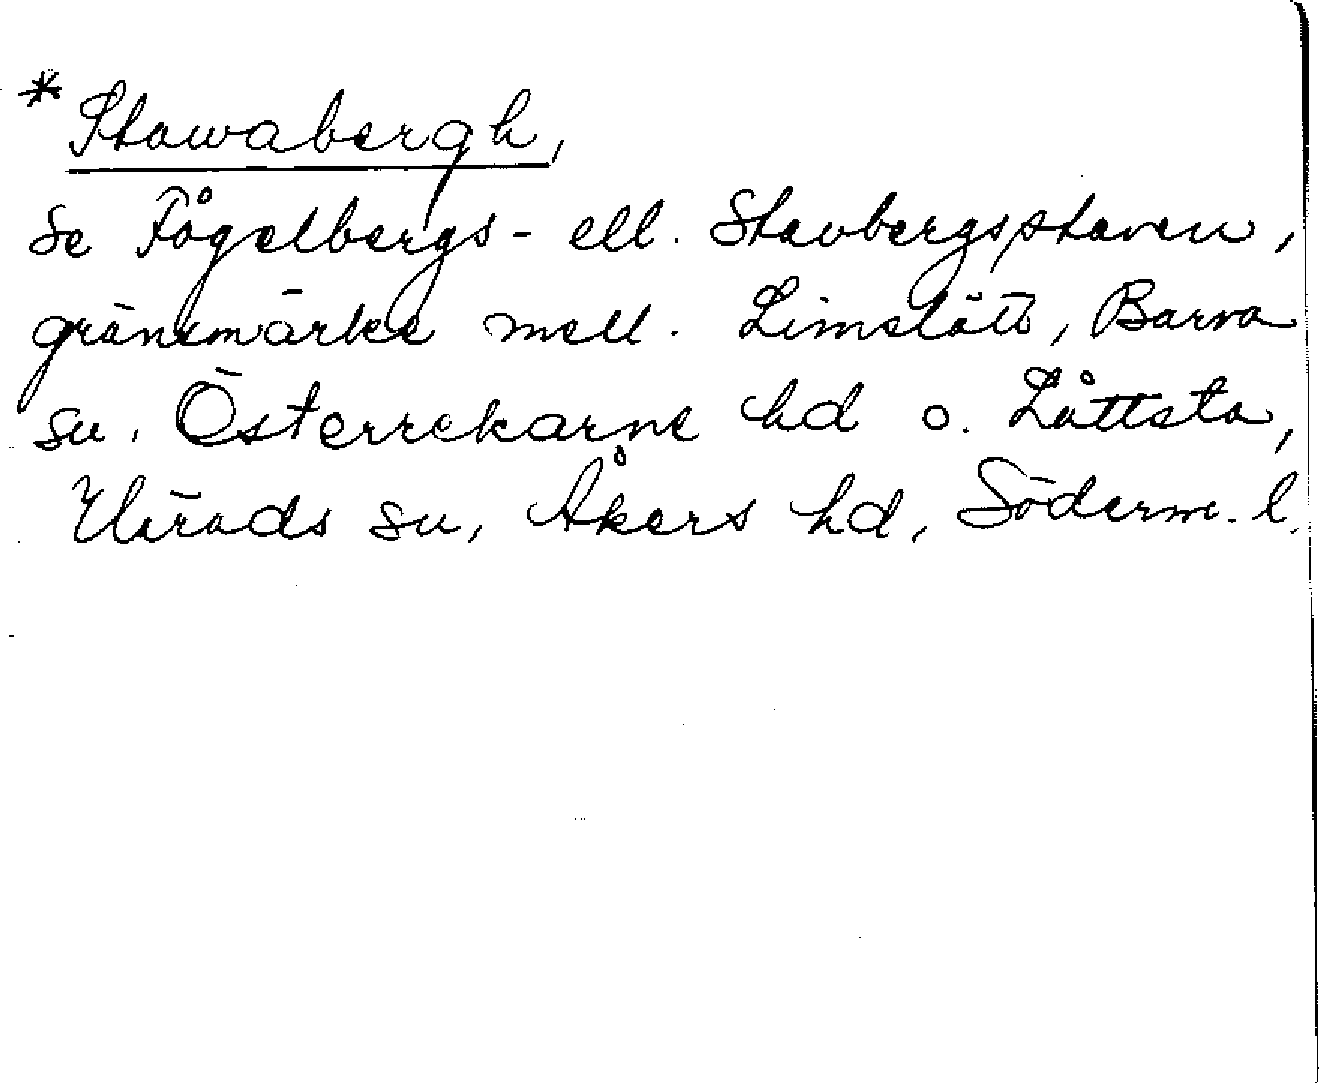 * Stawabergh,
Se Fågelbergs- ell. Stavbergsstaven,
gränsmärke mell. Limslätt, Barva
sn. Österrekarne hd o. Låttsta,
Härads sn, Åkers hd, Söderm. l.